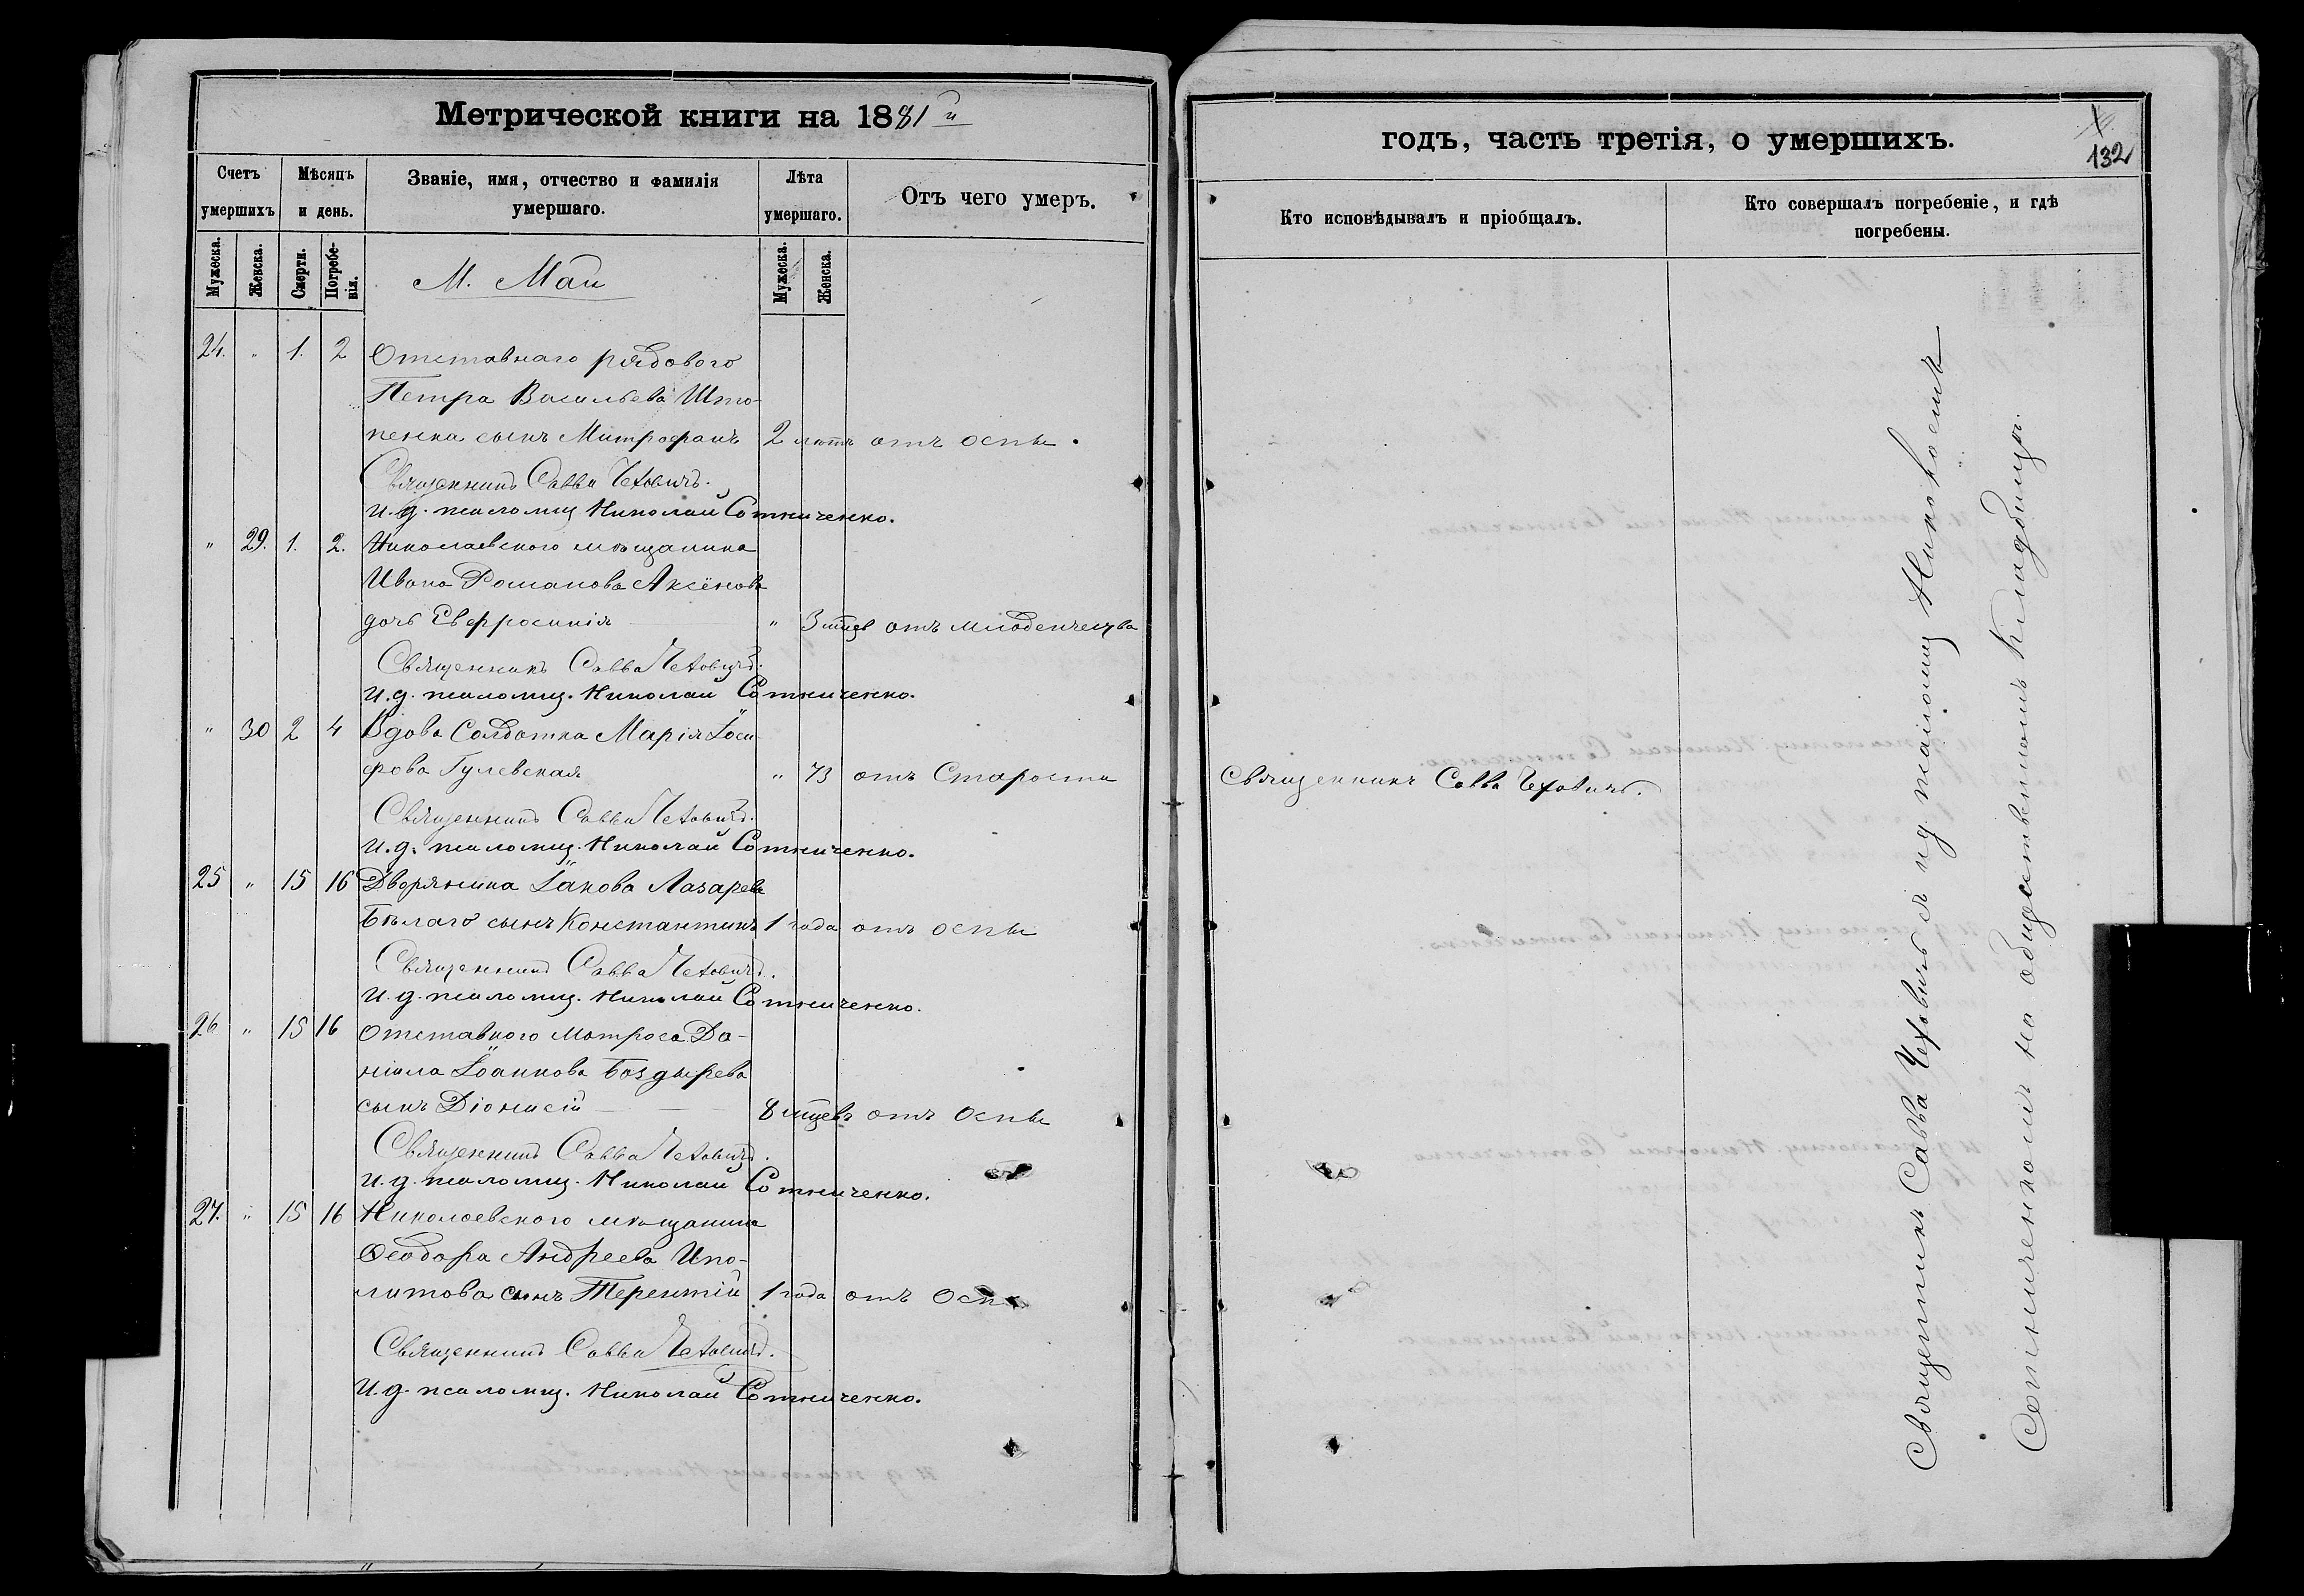 Метрической книги на 1881й
Счетъ умершихъ
Мѣсяцъ и день.
Званіе, имя, отчество и фамилія умершаго.
Лѣта умершаго.
Отъ чего умеръ.
Мужеска.
Женска.
Смерти.
Погребенія.
М. Май
Мужеска.
Женска.
24. " 1. 2 Отставнаго рядового
Петра Васильева Што-
пенка сынъ Митрофанъ 2 лѣтъ отъ оспы.
Священникъ Савва Чеховичъ.
И. д. псаломщ. Николай Сотниченко.
" 29. 1. 2. Николаевского мѣщанина
Ивана Романова Аксёнова
дочь Евфросинія " 3 мцев отъ младенчества
Священникъ Савва Чеховичъ.
И. д. псаломщ. Николай Сотниченко.
" 30 2 4 Вдова Солдатка Марія Іоси-
фова Гулевская " 73 отъ Старости
Священникъ Савва Чеховичъ.
И. д. псаломщ. Николай Сотниченко.
25 " 15 16 Дворянина Іакова Лазарева
Бѣлаго сынъ Константинъ 1 года отъ оспы
Священникъ Савва Чеховичъ.
И. д. псаломщ. Николай Сотниченко.
26 " 15 16 Отставного Матроса Да-
ніила Іоаннова Боздырева
сынъ Діонисій 8 мцевъ отъ Оспы
Священникъ Савва Чеховичъ.
И. д. псаломщ. Николай Сотниченко.
27. " 15 16 Николаевского мѣщанина
Ѳеодора Андреева Ипо-
литова сынъ Терентій 1 года отъ Оспы
Священникъ Савва Чеховичъ.
И. д. псаломщ. Николай Сотниченко.
годъ, часть третія, о умершихъ.
132
Кто исповѣдывалъ и пріобщалъ.
Кто совершалъ погребеніе, и гдѣ погребены.
Священникъ Савва Чеховичъ.
Священникъ Савва Чеховичъ съ ид псаломщ Николаемъ
Сотниченкомъ на общественномъ Кладбищѣ.